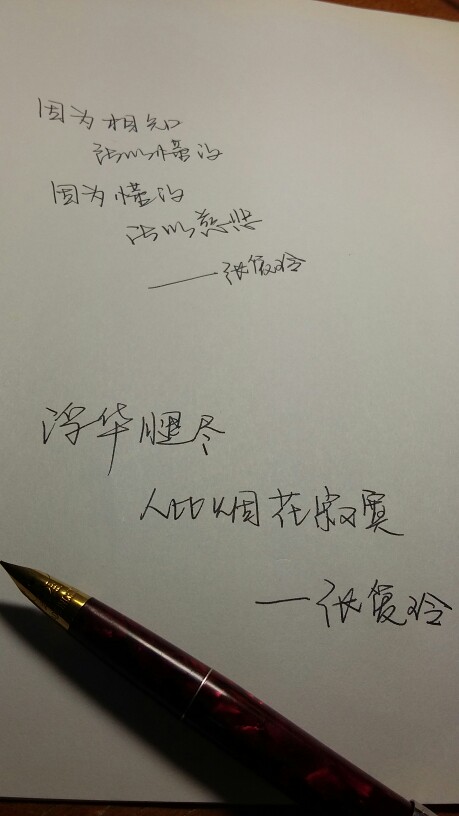 因为相知
所以懂得
因为懂得
所以慈悲
——张爱玲
浮华腿尽
人比烟花寂寞
—张爱玲